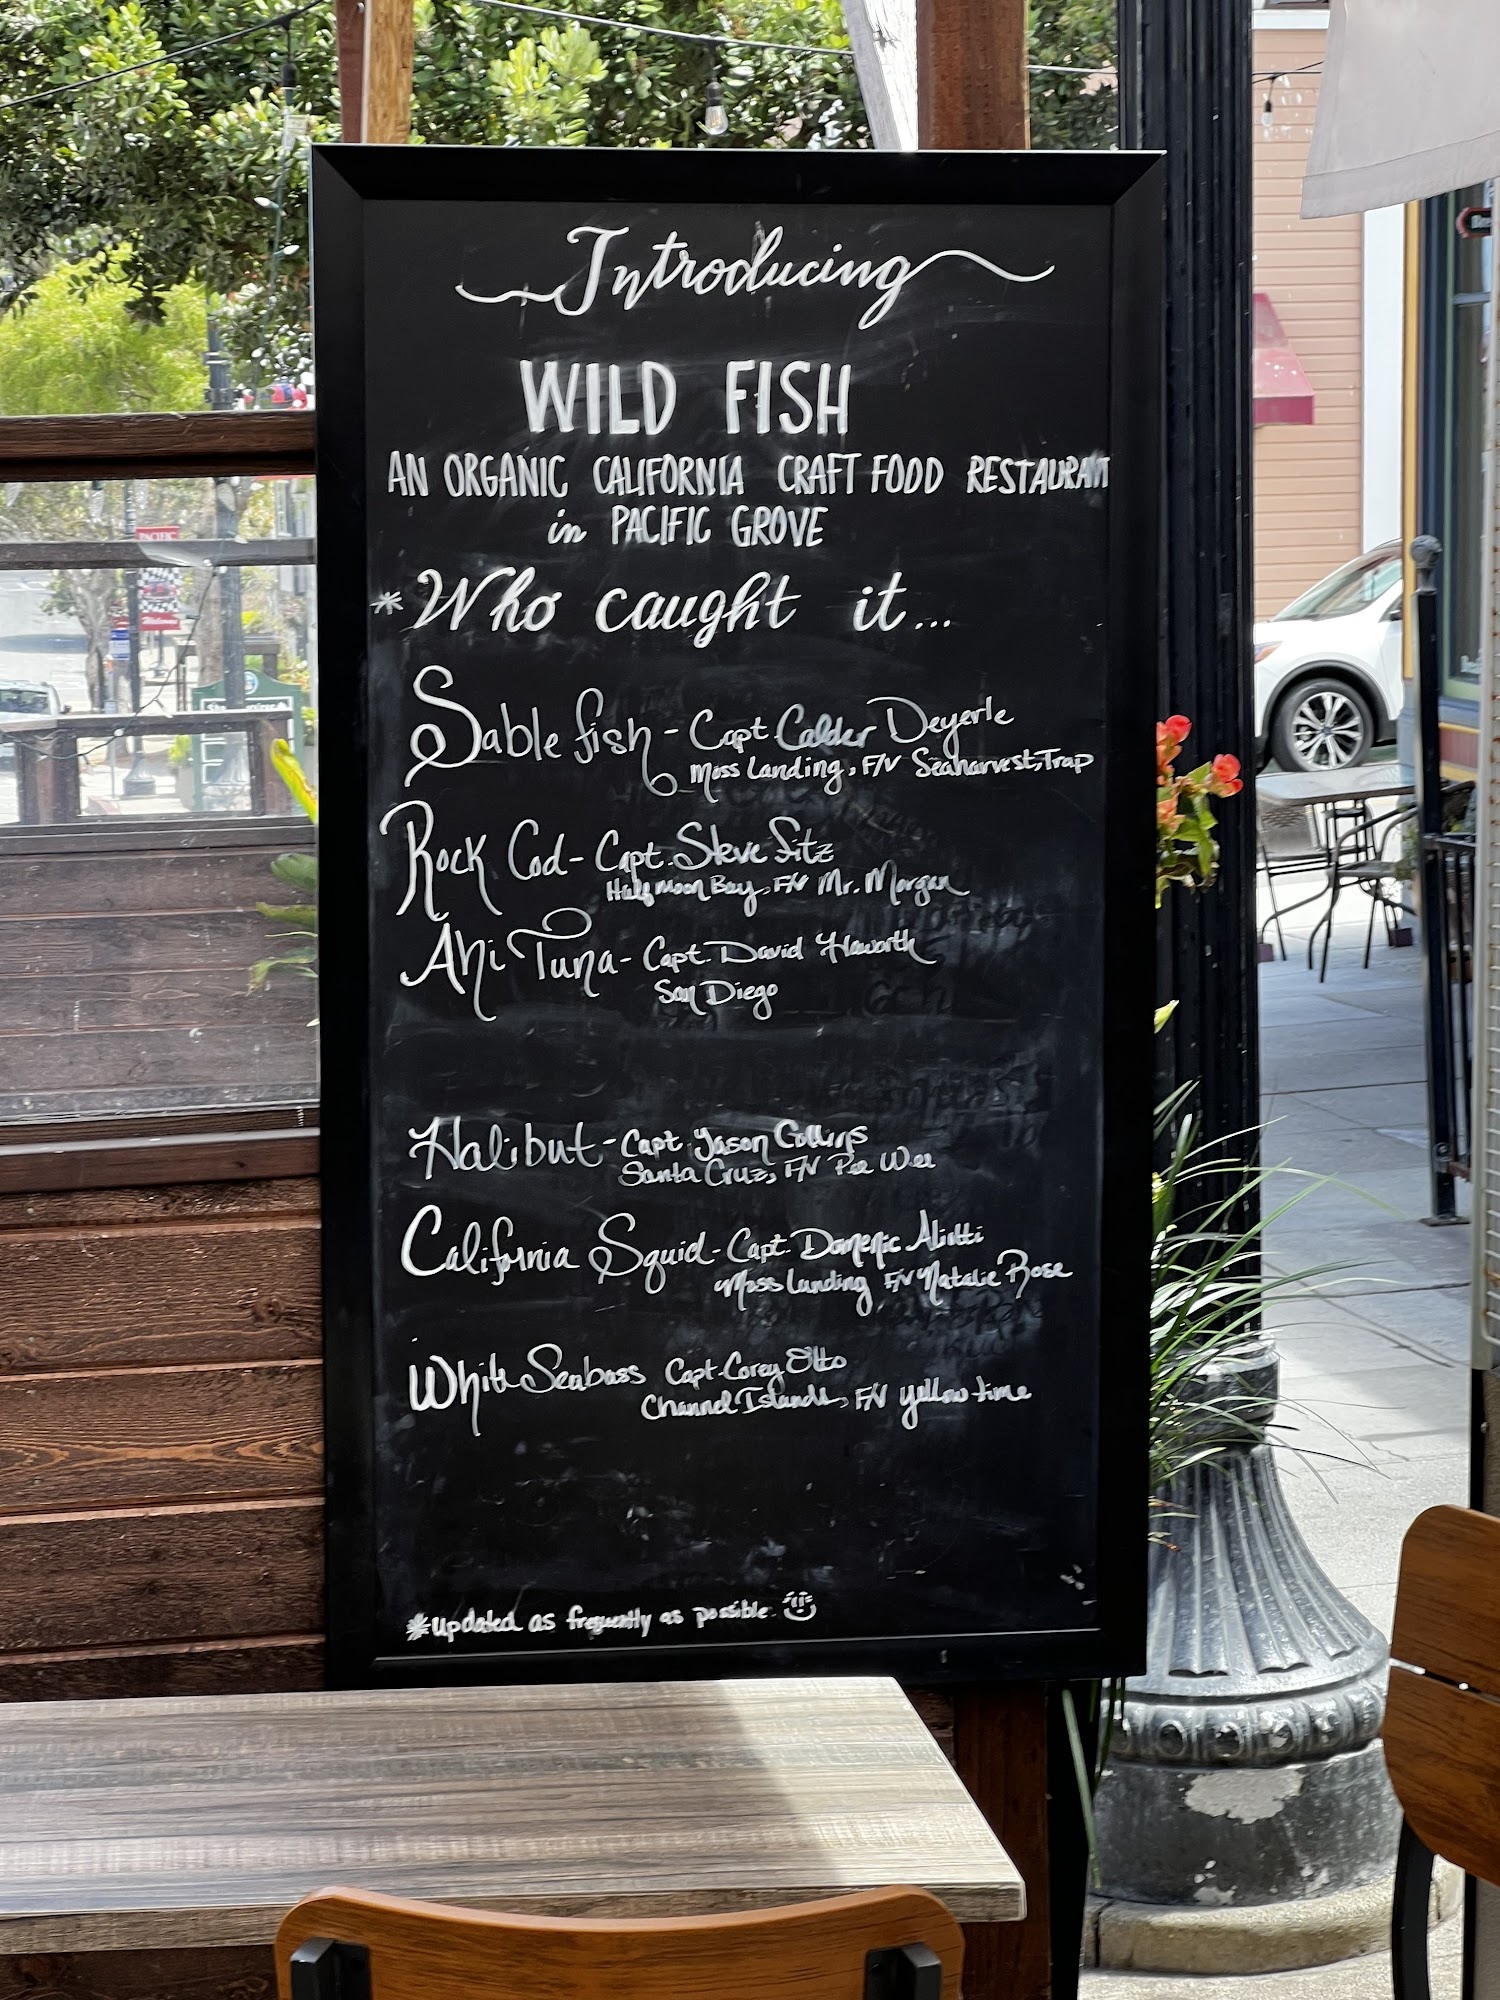 Introducing
WILD FISH
AN ORGANIC CALIFORNIA CRAFT FOOD RESTAURANT
in PACIFIC GROVE
*Who caught it...
Sablefish - Capt. Calder Deyerle
Moss Landing, F/V Seaharvest, Trap
Rock Cod - Capt. Steve Fitz
Half Moon Bay, F/V Mr. Morgan
Ahi Tuna - Capt. David Haworth
San Diego
Halibut - Capt. Jason Collins
Santa Cruz, F/V Pee Wee
California Squid - Capt. Domenic Aliotti
Moss Landing F/V Natalie Rose
White Seabass Capt. Corey Otto
Channel Islands, F/V Yellow time
*updated as frequently as possible.
PACIFIC
Welcome